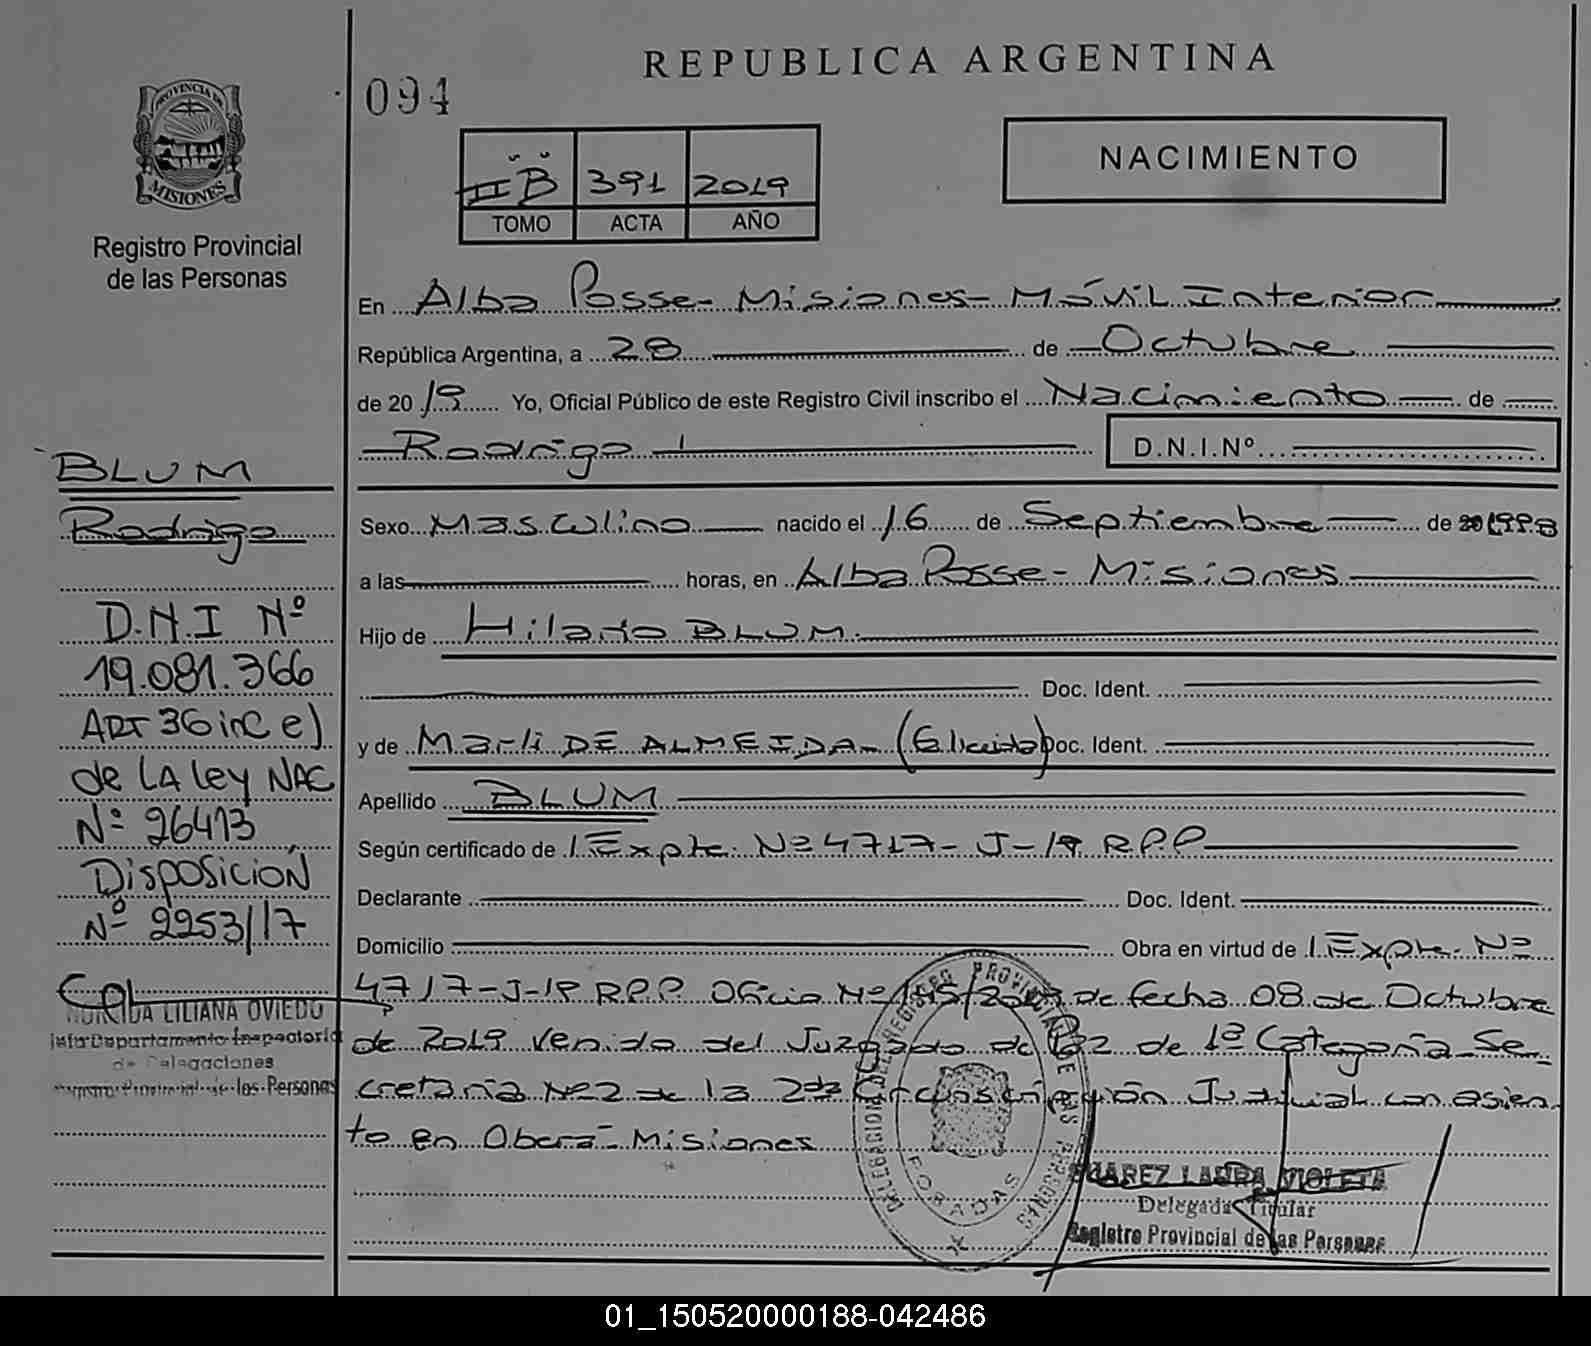 REPUBLICA ARGENTINA
094
PROVINCIA DE
MISIONES
Registro Provincial
de las Personas
II B 391 2019
TOMO ACTA AÑO
NACIMIENTO
En Alba Posse - Misiones - Móvil Interior
República Argentina, a 28 de Octubre
de 2019 Yo, Oficial Público de este Registro Civil inscribo el Nacimiento de
Rodrigo D.N.I.Nº
BLUM
Rodrigo
D.N.I Nº
19.081.366
ART 36 inc e)
de LA Ley NAC
Nº 26413
Disposición
Nº 2253/17
LILIANA OVIEDO
Jefa Departamento Inspectoria
de Delegaciones
Registro Provincial de las Personas
Sexo Masculino nacido el 16 de Septiembre de 1998
a las horas, en Alba Posse - Misiones
Hijo de Hilario BLUM
Doc. Ident.
y de Marli DE ALMEIDA - Doc. Ident.
Apellido BLUM
Según certificado de Expte. Nº 4717 - J - 19 R.P.P
Declarante Doc. Ident.
Domicilio Obra en virtud de Expte. Nº
4717-J-19 R.P.P. Oficio Nº de fecha 08 de Octubre
de 2019 venido del Juzgado de Paz de 1ª Categoría Se
cretaria Nº2 de la 2da Circunscripción Judicial con asien
to en Oberá - Misiones
DELEGACION DEL REGISTRO PROVINCIAL DE LAS PERSONAS
POSADAS
SUAREZ LAURA VIOLETA
Delegada Titular
Registro Provincial de las Personas
01_150520000188-042486